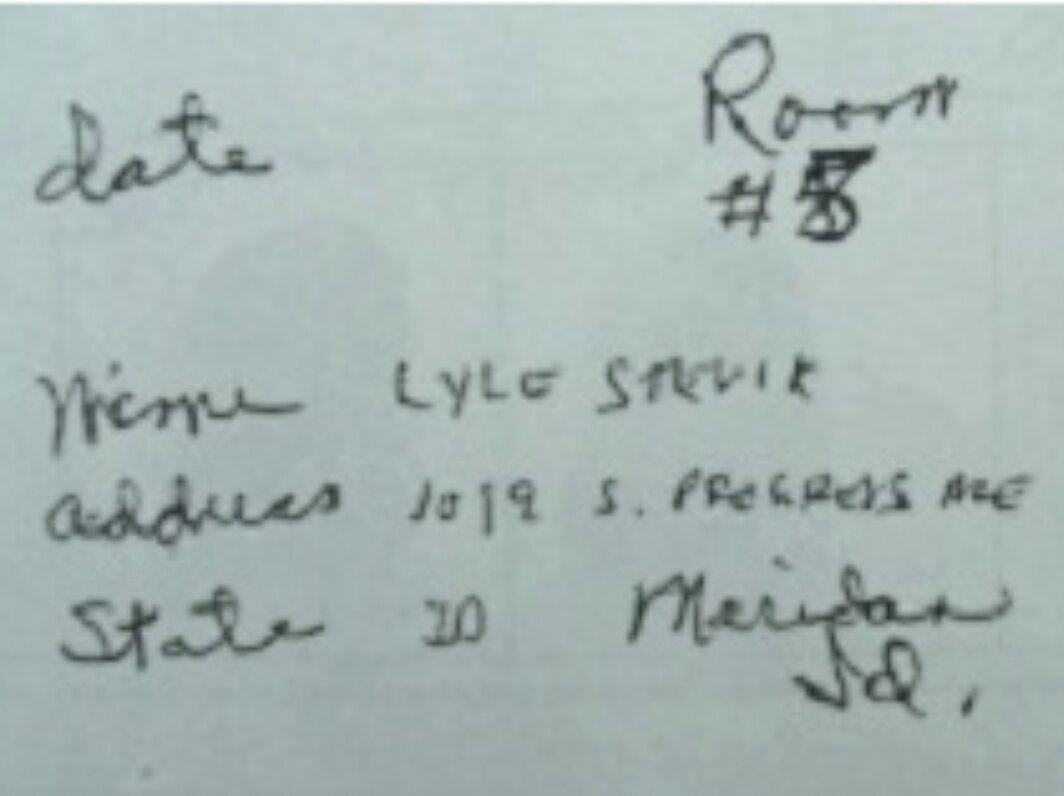 date
Room
#
Name LYLE STEVIK
address 1019 S. PROGRESS AVE
State ID Meridan
Id.